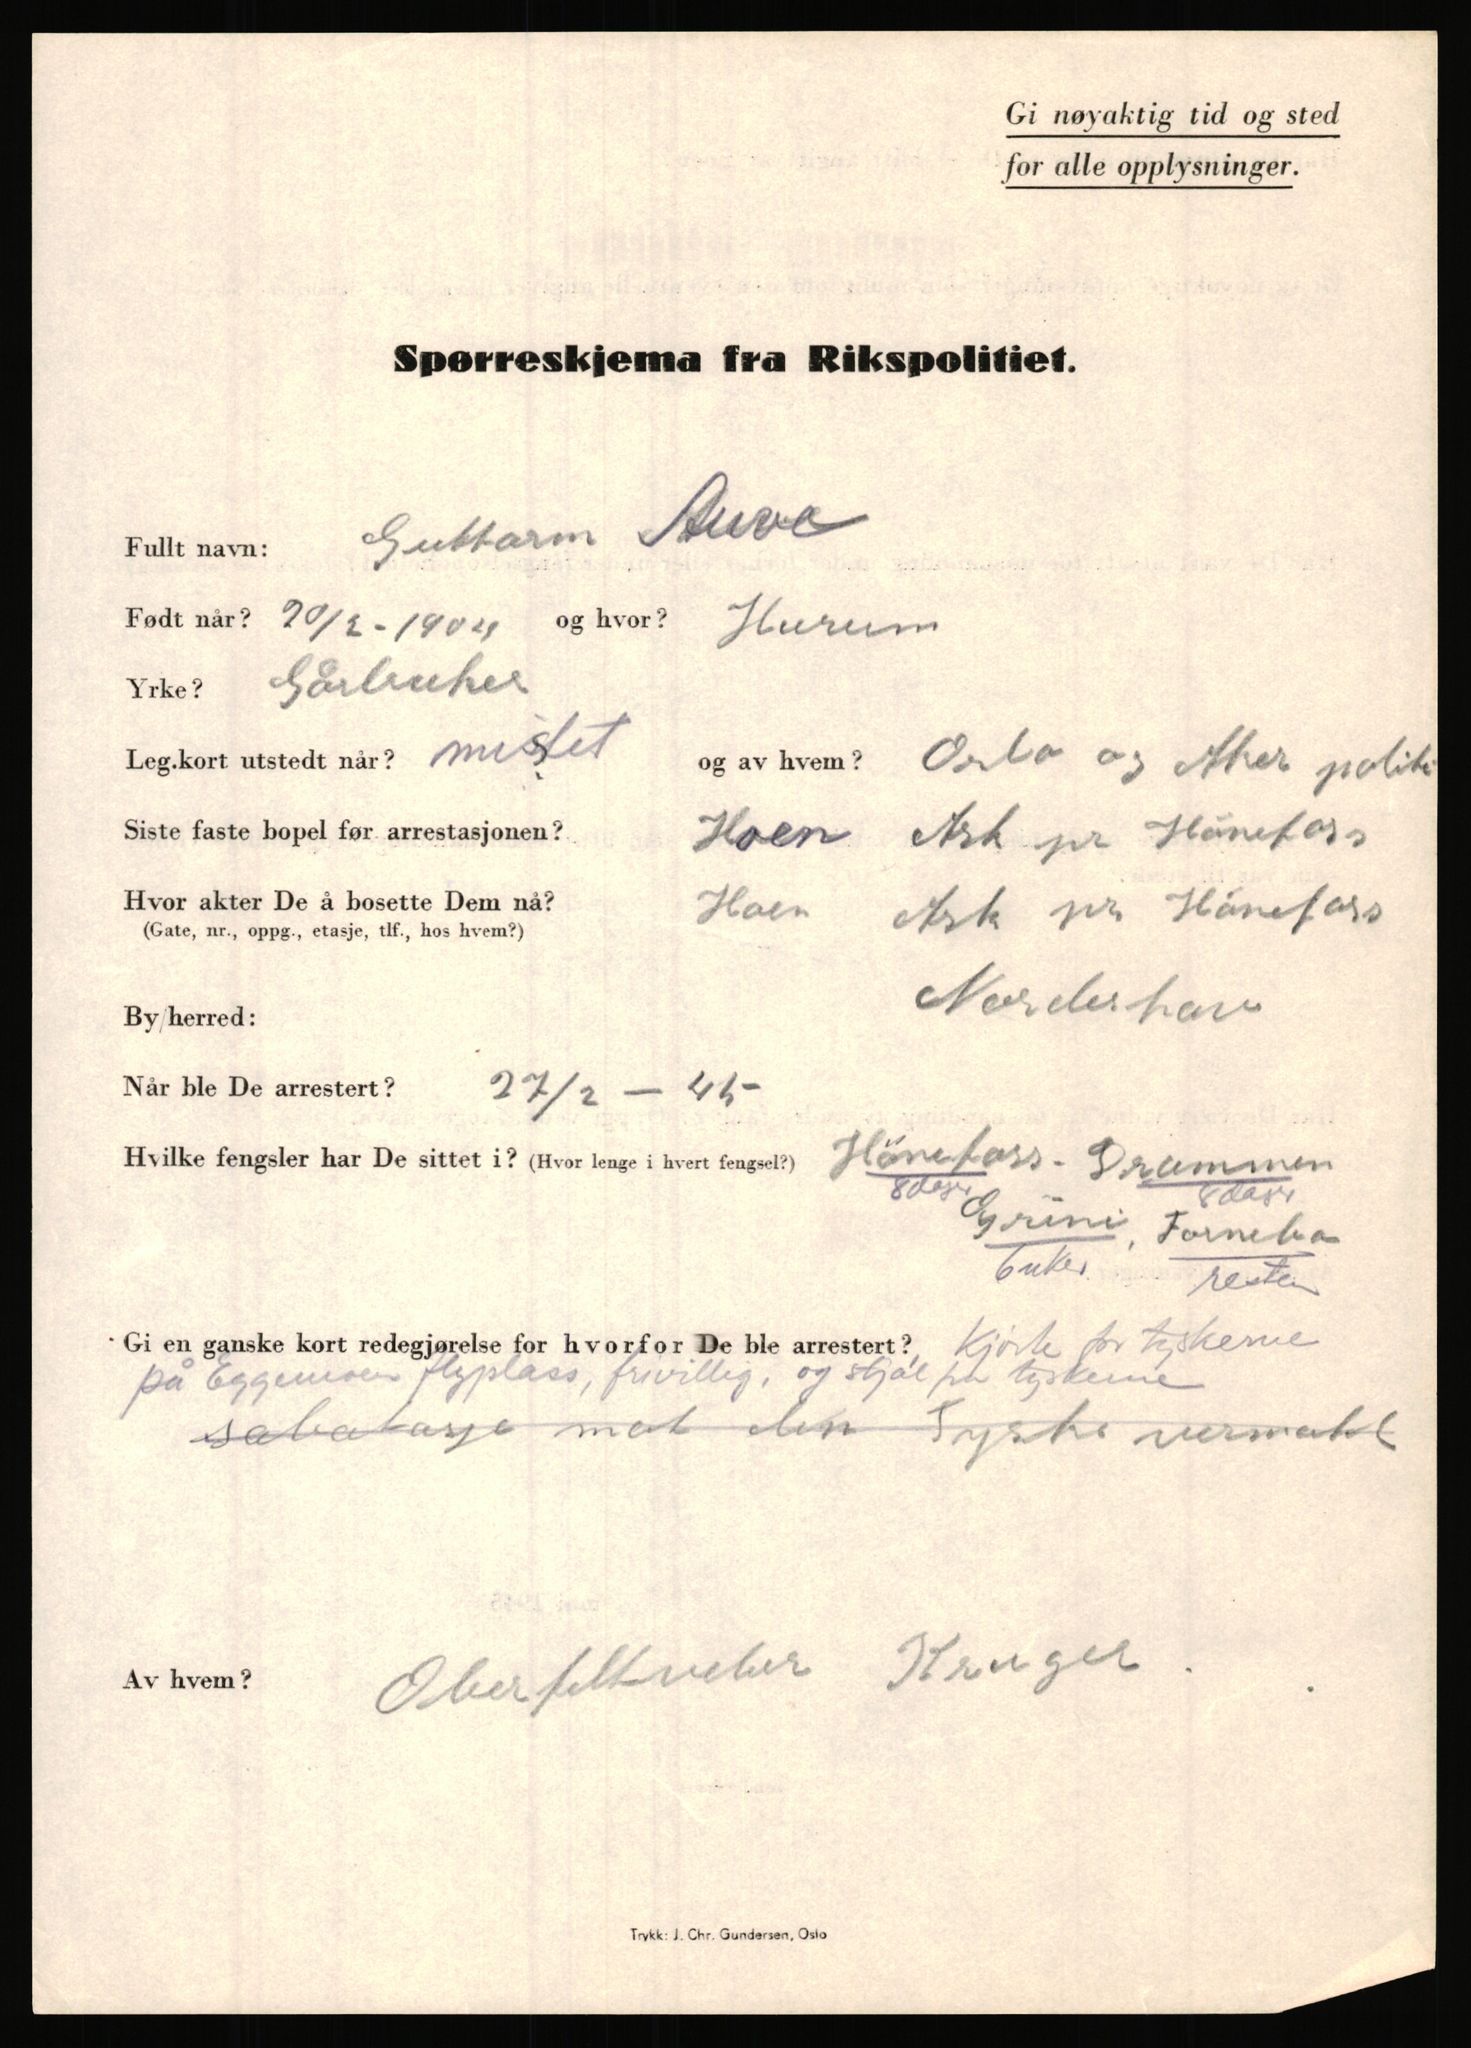 Gi nøyaktig tid og sted
for alle opplysninger.
Spørreskjema fra Rikspolitiet.
Fullt navn: Guttorm Auve
Født når? 20/2-1904 og hvor? Hurum
Yrke? Gårbruker
Leg.kort utstedt når? mistet og av hvem? Oslo og Aker politi
Siste faste bopel før arrestasjonen? Hoen Ask pr Hönefoss
Hvor akter De å bosette Dem nå? Hoen Ask pr Hönefoss
(Gate, nr., oppg., etasje, tlf., hos hvem?)
Norderhov
By/herred:
Når ble De arrestert? 27/2 - 45
Hvilke fengsler har De sittet i? (Hvor lenge i hvert fengsel?) Hönefoss - Drammen
8 dager 8 dager
Grini, Fornebo
6 uker resten
Gi en ganske kort redegjørelse for hvorfor De ble arrestert? Kjørte for tyskerne
på Eggemoen flyplass, frivillig, og stjal fra tyskerne
sabotasje mot den Tyske vermakt
Av hvem? Oberfeltveber Kruger.
Trykk: J. Chr. Gundersen, Oslo